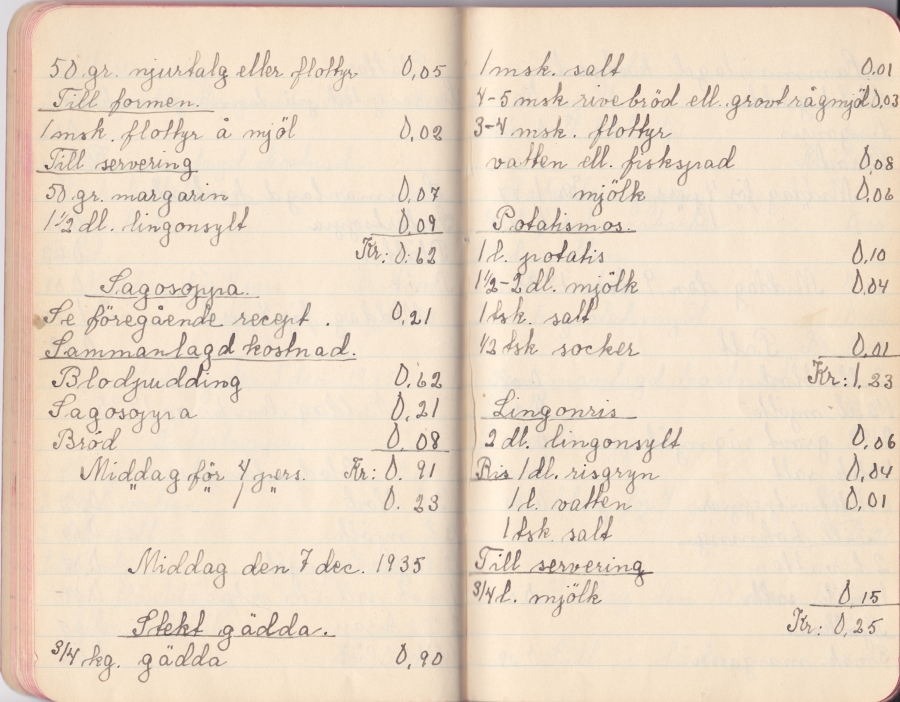 50 gr. njurtalg eller flottyr 0,05
Till formen.
1 msk. flottyr å mjöl 0,02
Till servering
50 gr. margarin 0,07
1 1/2 dl. lingonsylt 0,09
Kr: 0.62
Sagosoppa.
Se föregående recept. 0,21
Sammanlagd kostnad.
Blodpudding 0.62
Sagosoppa 0.21
Bröd 0.08
Middag för 4 pers. Kr: 0.91
" " 1 " 0.23
Middag den 7 dec. 1935
Stekt gädda.
3/4 kg. gädda 0,90
1 msk. salt 0.01
4-5 msk rivebröd ell. grovt rågmjöl 0,03
3-4 msk. flottyr
vatten ell. fiskspad 0,08
mjölk 0,06
Potatismos.
1 l. potatis 0,10
1 1/2-2 dl. mjölk 0,04
1 tsk. salt
1/2 tsk socker 0.01
Kr: 1.23
Lingonris
2 dl. lingonsylt 0,06
Ris 1 dl. risgryn 0,04
1 l. vatten 0,01
1 tsk salt
Till servering
3/4 l. mjölk 0.15
Kr: 0,25